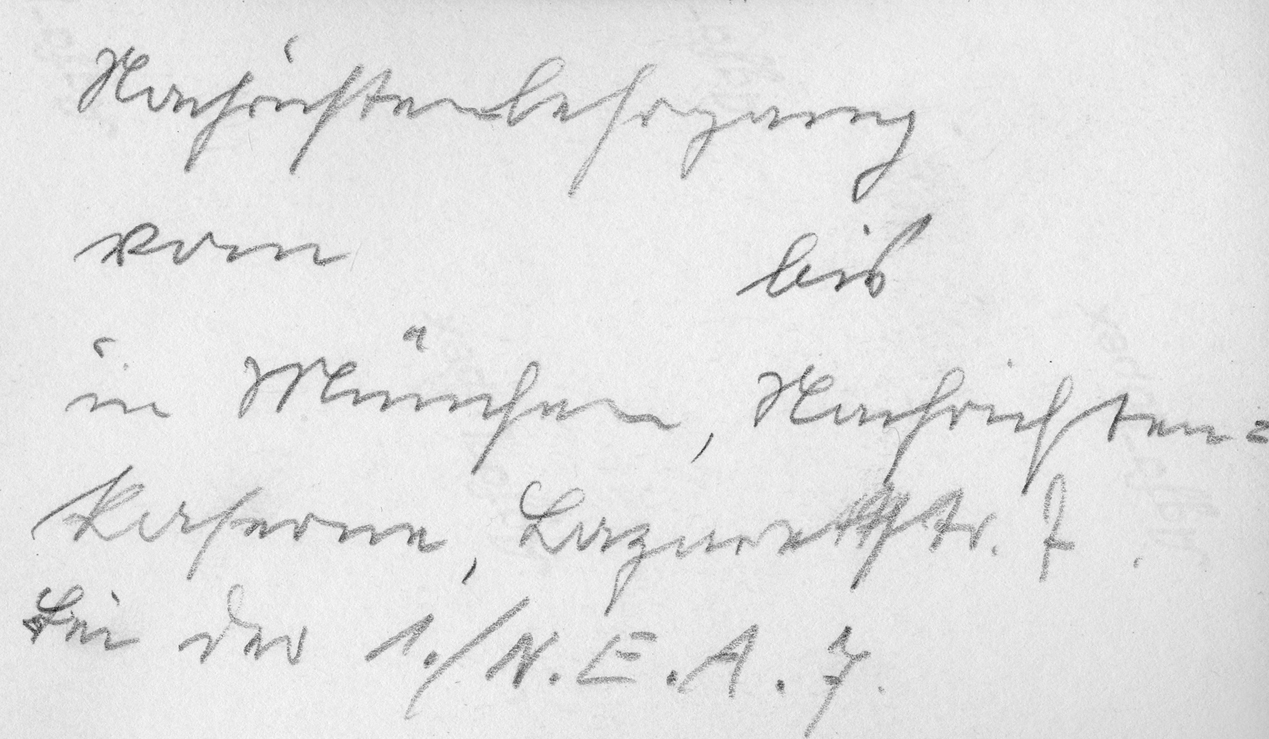 Nachrichtenlehrgang
vom bis
in München, Nachrichten=
kaserne, Lazarettstr. 7.
Bei der 1./N.E.A. 7.